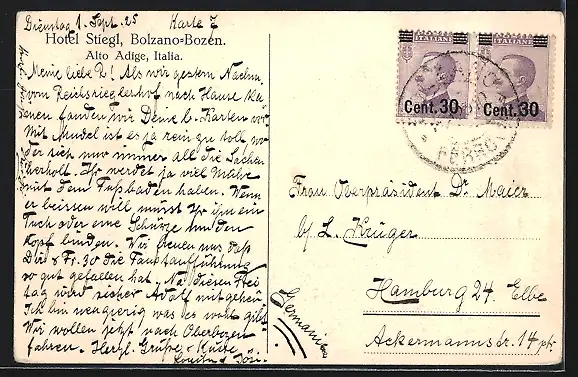 Dienstag 1. Sept. 25 Karte 7
Hotel Stiegl, Bolzano=Bozen.
Alto Adige, Italia.
Meine liebe R! Als wir gestern Nachm.
vom Reichrieglerhof nach Hause ka
fanden wir Deine l. Karten vor
Mit Mundel ist es ja rein zu toll, wo
der sich nur immer all die Sachen
herholt. Ihr werdet ja viel Mühe
mit dem Fussbaden haben. Wenn
er beissen will müsst Ihr ihm ein
Tuch oder eine Schürze um den
Kopf binden. Wir freuen uns daß
Dir u Fr. 30 die Faustaufführung
so gut gefallen hat. Na diesen Frei
tag wird sicher Adolf mitgehen
Ich bin neugierig was es wohl gibt.
Wir wollen jetzt nach Oberbozen
fahren. Herzl. Grüße u Küsse
ITALIANE ITALIANE
Cent. 30 Cent. 30
Frau Oberpräsident Dr. Maier
b/ L. Krüger
Hamburg 24. Elbe
Ackermannstr. 14 ptr.
Germania